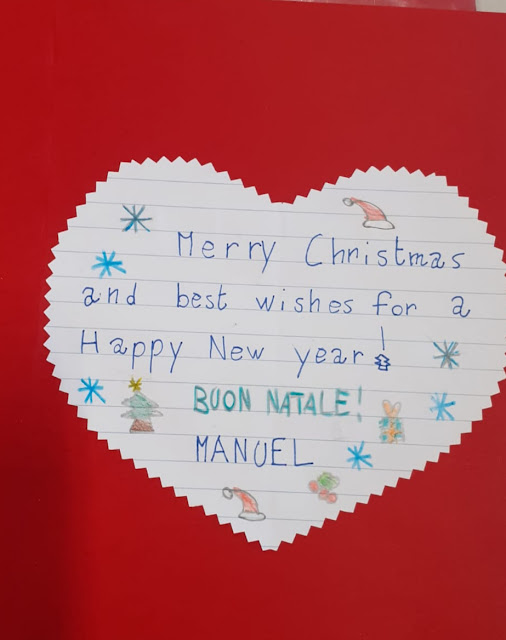 Merry Christmas
and best wishes for a
Happy New year!
BUON NATALE!
MANUEL